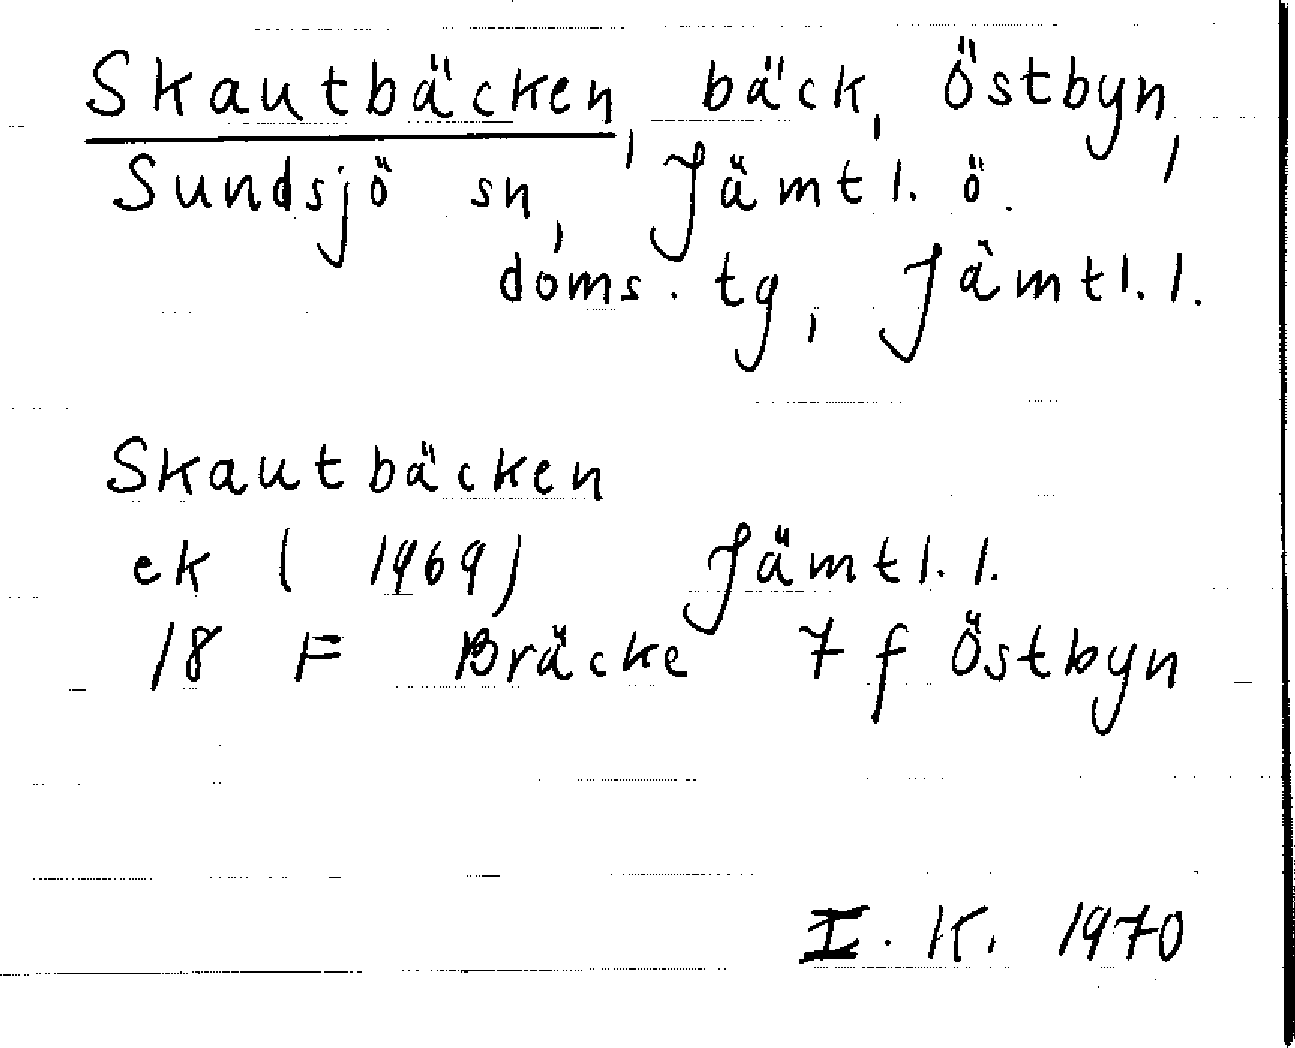 Skautbäcken, bäck, Östbyn,
Sundsjö sn, Jämtl. ö.
doms. tg, Jämtl. l.
Skautbäcken
ek (1969) Jämtl. l.
18 F Bräcke 7 f Östbyn
I. K. 1970